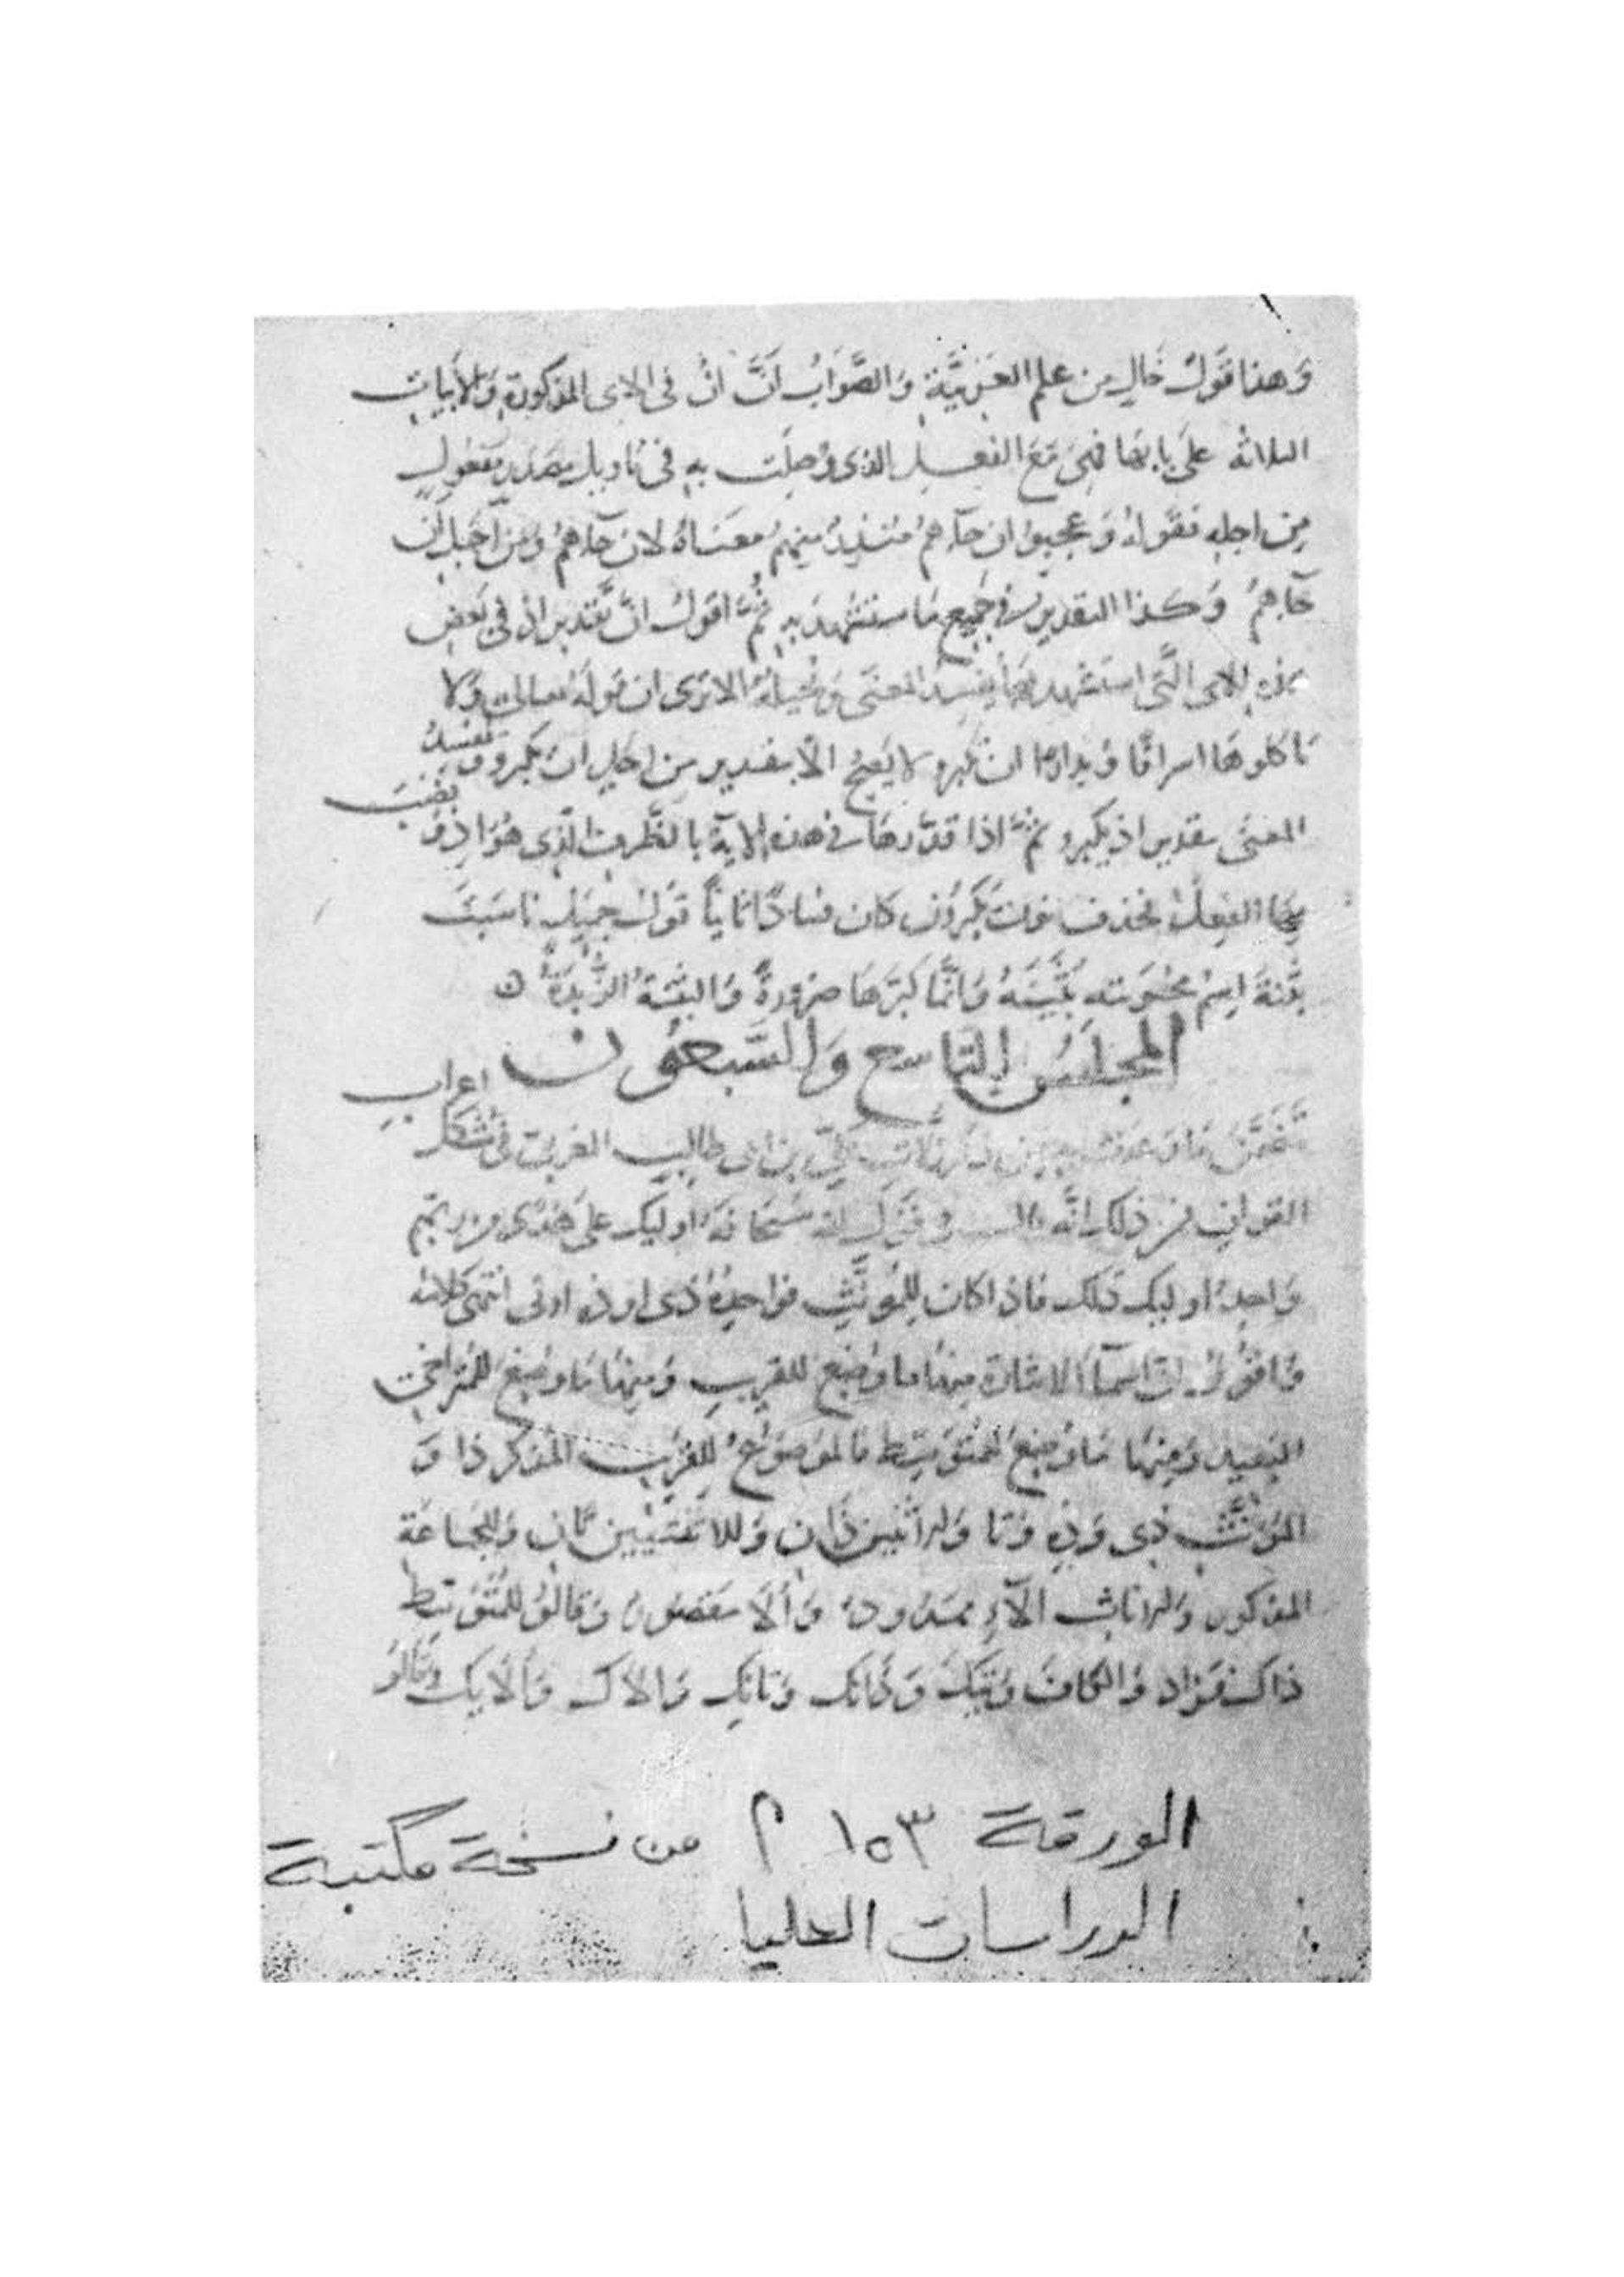 وهذا قول خال من علم العربية والصواب أن أن في الاى المذكورة والأبيات
الثلاثة على بابها فهي مع الفعل الذي وصلت به في تاويل مصدر مفعول
من اجله فقوله وعجبوا ان جاءهم منذر منهم معناه لان جاءهم ومن أجل أن
جاءهم وكذا التقدير في جميع ما استشهد به ثم اقول ان تقدير اذ في بعض
هذه الاى التي استشهد بها يفسد المعنى ويحيله الا ترى ان قوله تعالى ولا
تاكلوها اسرافا وبدارا ان يكبروا لا يصح الا بتقدير من اجل ان يكبروا ويفسد
المعنى بتقدير اذ يكبروا ثم اذا قدرها في هذه الاية بالظرف الذي هو اذ ونصب
بها الفعل بحذف نون يكبرون كان فسادا ثانيا قول جميل ناسبت
بثنة اسم محبوبته بثينة وانما كبرها ضرورة والبثنة الزبدة ن
المجلس التاسع والسبعون
تضمن ما وقفت به من المغربى في مشكل اعراب
القران فمن ذلك انه قال في قول الله سبحانه اوليك على هدى من ربهم
واحد اوليك ذلك فاذا كان للمؤنث فواحده ذى او ذه او تى انتهى كلامه
واقول ان اسماء الاشارة منها ما وضع للقريب ومنها ما وضع للمتراخى
البعيد ومنها ما وضع للمتوسط فالموضوع للقريب المذكر ذا و
المؤنث ذى وذه وتا وللاثنين ذان وللاثنتين تان وللجماعة
المذكور وللاناث الآء ممدود وألا مقصور وقالوا للمتوسط
ذاك فزادوا الكاف وتيك وذانك وتانك والاك وألايك وقالوا
الورقة ١٥٣ م من نسخة مكتبة
الدراسات العليا